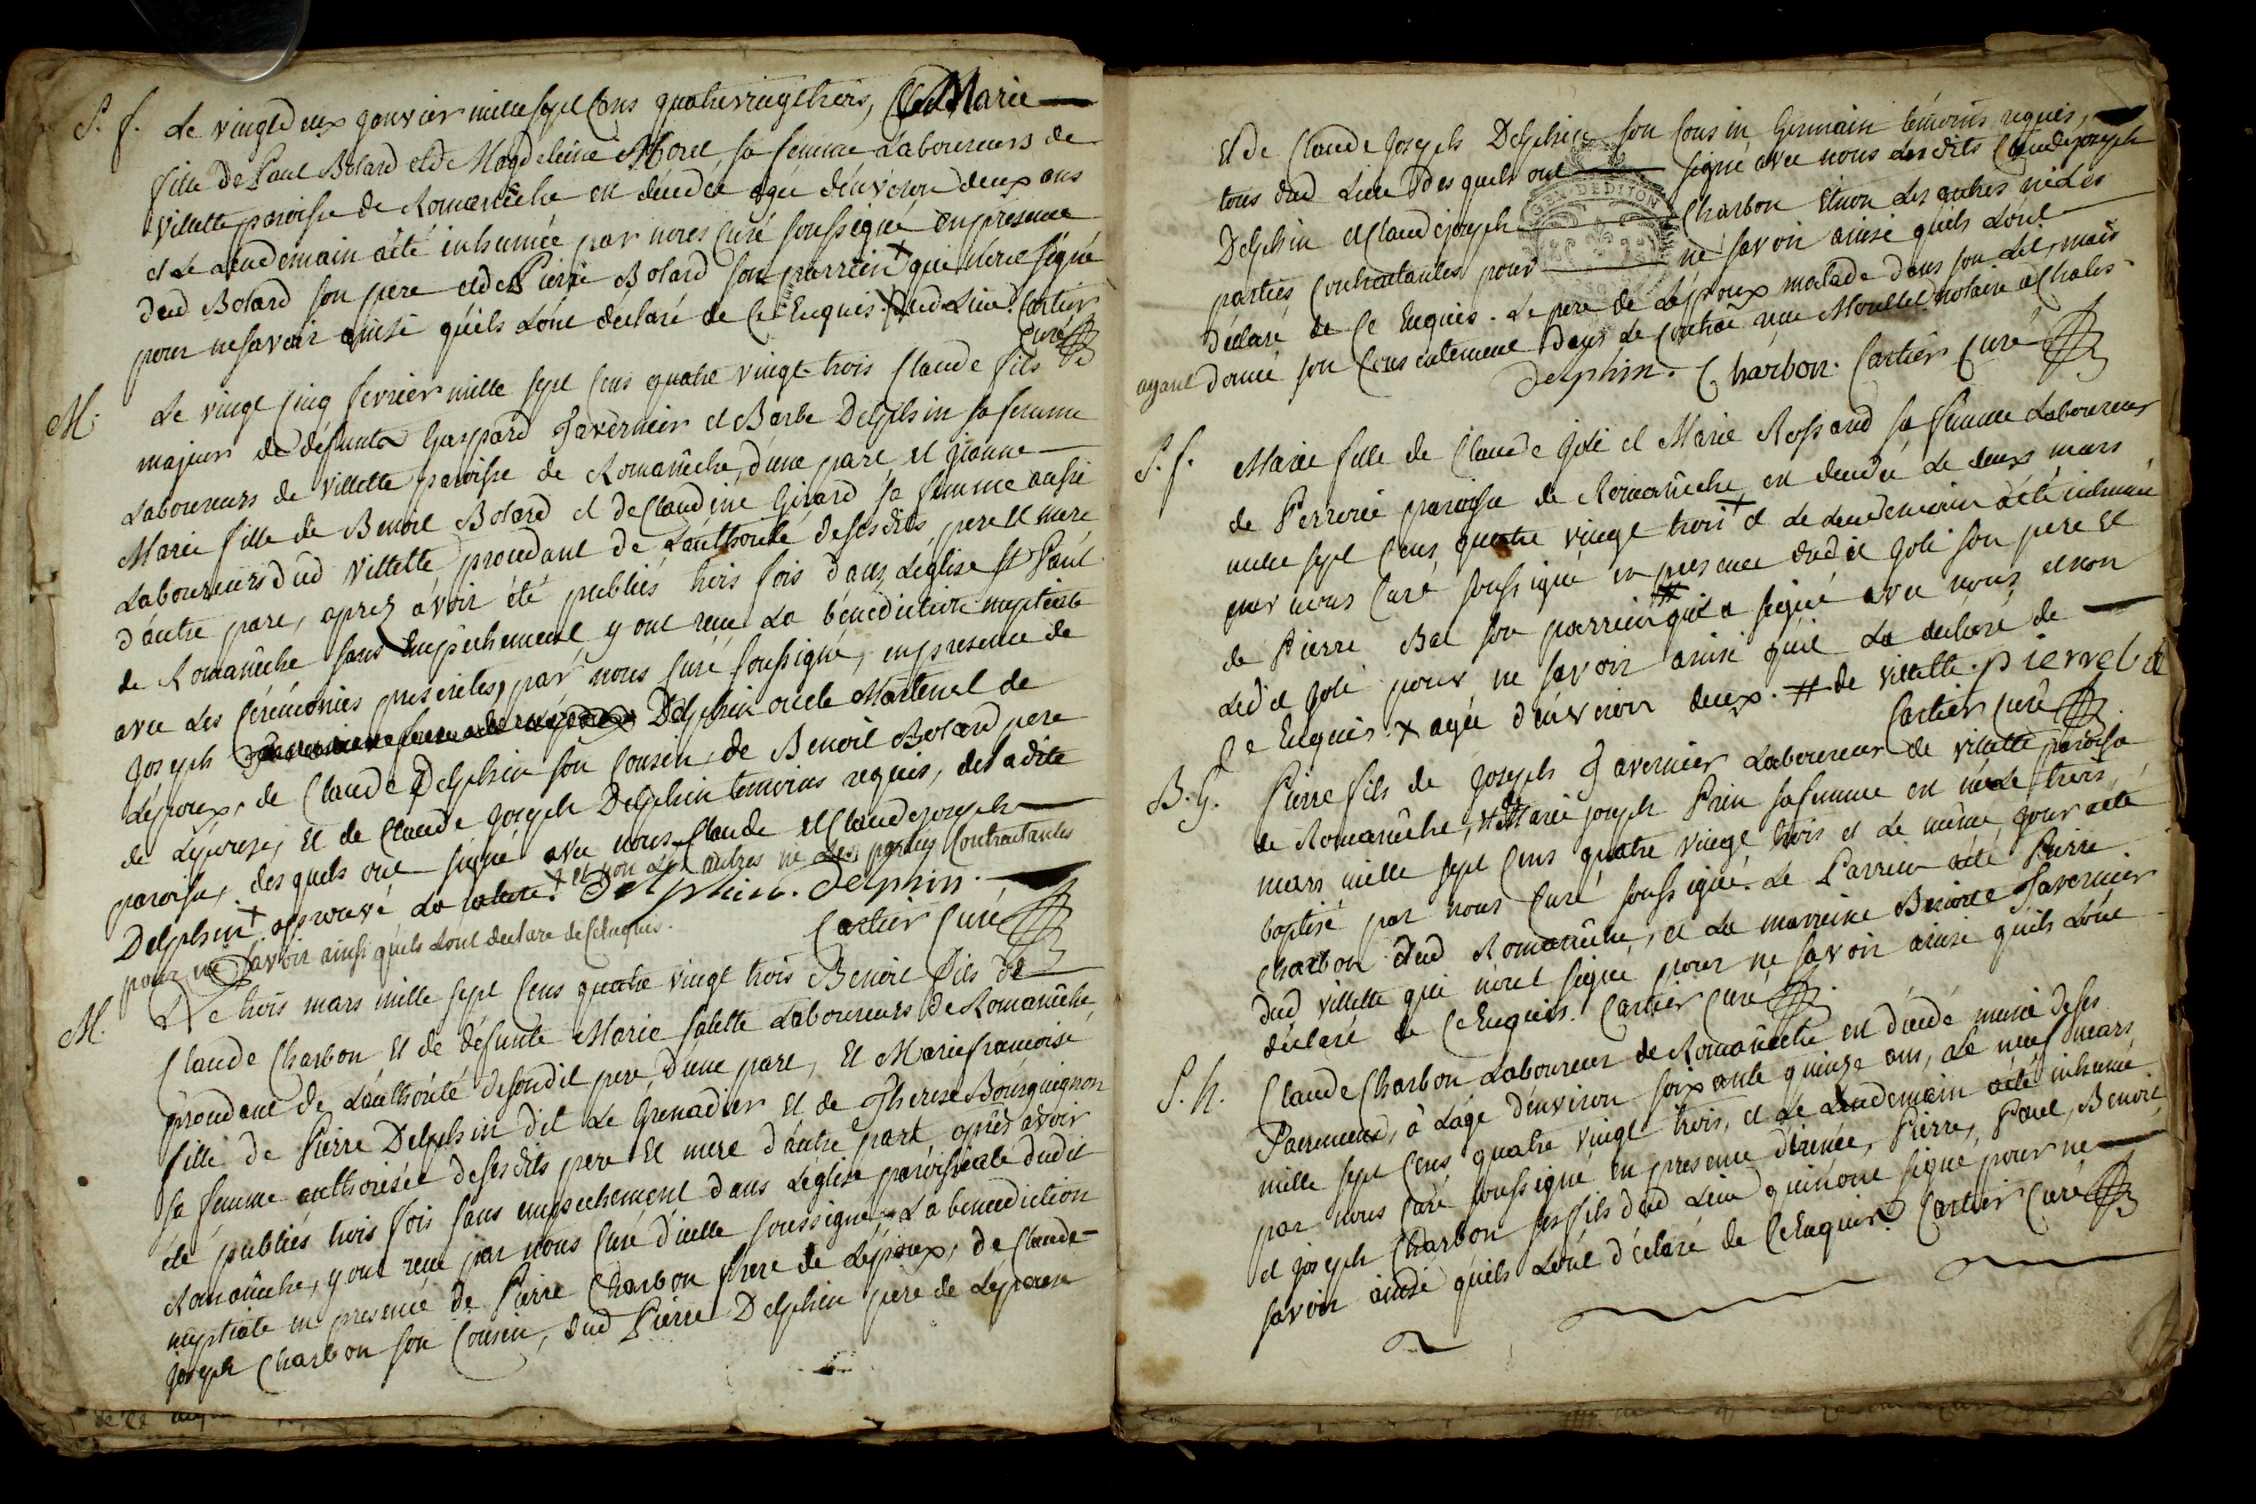 S. f. Le vingt deux janvier mille sept cens quatre vingt trois, Marie
fille de Paul Bolard et de Magdeleine Morel, sa femme Laboureurs de
villette paroisse de Romanêche est décédée agée d'environ deux ans
et Le Lendemain a été inhumée par nous Curé soussigné en présence
dud Bolard son pere et de Pierre Bolard son parrein + qui n'ont signé
pour ne savoir ainsi qu'ils L'ont déclaré de Ce Enquis. + dud Lieu. Cartier
Curé
M. Le vingt Cinq fevrier mille sept Cens quatre vingt-trois Claude fils
majeur de défunts Gaspard Tavernier et Barbe Delphin sa femme
Laboureurs de villette paroisse de Romanêche, d'une part et jeanne
Marie fille de Benoit Bolard et de Claudine Girard sa femme aussi
Laboureurs dud villette procedant de L'authorité de ses dits pere et mere
d'autre part, après avoir été publiés trois fois dans L'eglise St Paul
de Romanêche sans Empêchement, y ont reçu La bénédiction nuptiale
avec Les Cérémonies prescrites, par nous Curé soussigné, en presence de
joseph Delphin oncle Maternel de
L'époux, de Claude Delphin son Cousin, de Benoit Bolard pere
de L'épouse, et de Claude joseph Delphin temoins requis, de Ladite
paroisse, des quels ont signé avec nous Claude et Claude joseph
Delphin + approuvé La rature. + et non Les autres ni Les parties Contractantes
Delphin. Delphin.
pour ne savoir ainsi qu'ils L'ont declaré de Ce Enquis.
Cartier Curé
M. Le trois mars mille sept Cens quatre vingt trois Benoit fils de
Claude Charbon et de défunte Marie Salette Laboureurs de Romanêche
procedant de L'authorité de sondit pere d'une part, et Marie françoise
fille de Pierre Delphin dit Le Grenadier et de Therese Bourguignon
sa femme authorisée de ses dits pere et mere d'autre part, après avoir
été publiés trois fois sans empêchement dans L'église paroissiale dudit
Romanêche, y ont reçu par nous Curé d'icelle soussigné La benediction
nuptiale en presence de Pierre Charbon frere de L'époux, de Claude-
joseph Charbon son Cousin, dud Pierre Delphin pere de L'épouse
et de Claude joseph Delphin son Cousin Germain témoins requis,
tous dud Lieu des quels ont signé avec nous Les dits Claude joseph
Delphin et Claude joseph Charbon et non Les autres ni Les
parties Contractantes pour ne savoir ainsi qu'ils L'ont
déclaré de Ce Enquis. Le pere de L'époux malade dans son Lit, mais
ayant donné son Consentement dans Le Contrat reçu notaire a Chales
Delphin. Charbon. Cartier Curé
S. f. Marie fille de Claude Joli et Marie Rossand sa femme Laboureur
de Perrorié paroisse de Romanêche, est decedée Le deux mars
mille sept Cens quatre vingt trois + et Le Lendemain a été inhumée
par nous Curé soussigné en presence dudit Joli son pere et
de Pierre Bal son parrein # qui a signé avec nous, et non
Led it Joli pour ne savoir ainsi qu'il La declaré de
Ce Enquis. + agée d'environ deux. # de villette. pierre bal
Cartier Curé
B. G. Pierre fils de joseph Tavernier Laboureur de villette paroisse
de Romanêche, et de Marie joseph Prin sa femme est né Le trois
mars mille sept Cens quatre vingt trois et Le même jour a été
baptisé par nous Curé soussigné. Le Parrein a été Pierre
Charbon dud Romanêche, et La marreine Benoite Tavernier
dud villette qui n'ont signé pour ne savoir ainsi qu'ils L'ont
déclaré de Ce Enquis. Cartier Curé
S. h. Claude Charbon Laboureur de Romanêche est décédé muni de ses
Sacremens, à L'âge d'environ soixante quinze ans, Le neuf mars
mille sept Cens quatre vingt trois, et Le Lendemain a été inhumé
par nous Curé soussigné en presence d'irenée, Pierre, Paul, Benoit,
et joseph Charbon ses fils dud Lieu qui n'ont signé pour ne
savoir ainsi qu'ils L'ont déclaré de Ce Enquis. Cartier Curé